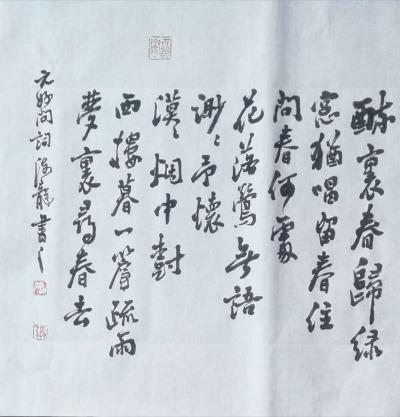 醉裏春歸緑
窓猶唱留春住
問春何處
花落鶯无語
渺々予懷
漠々烟中樹
西樓暮一簾疏雨
夢裏尋春去
元好问詞 龍書之